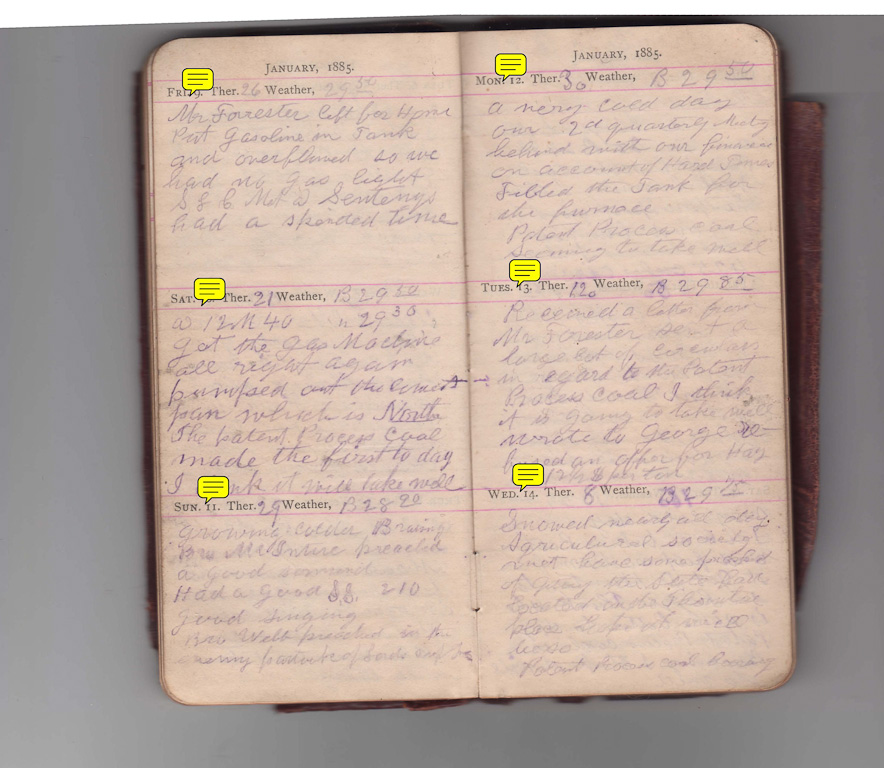 JANUARY, 1885.
FRI. 9. Ther. 26 Weather, 29 50
Mr Forrester left for Home
Put Gasoline in Tank
and overflowed so we
had no gas light
S & C Met W Sentenys
had a splended time
SAT. Ther. 21 Weather, B 29 50
@ 12 M 40 " 29 30
Got the Gas Machine
all right again
pumped out the
pan which is North
The patent Process Coal
made the first to day
I think it will take well
SUN. 11. Ther. 29 Weather, B 28 20
growing colder B raising
Bro McIntire preached
a good sermond
Had a good S.S. 210
good singing
Bro Welt preached in the
JANUARY, 1885.
MON. 12. Ther. 30 Weather, B 29 50
a very cold day
our 2d quarterly Meeting
behind with our finance
on account of Hard Times
Filled the Tank for
the furnace
Patent Process Coal
Seeming to take well
TUES. 13. Ther. 12 Weather, B 29 85
Received a letter from
Mr Forrester sent a
large lot of circulars
in regard to the Patent
Process Coal I think
it is going to take well
wrote to George
an offer for Hay
ton
WED. 14. Ther. 8 Weather, B 29
Snowed nearly all day
Agricultural society
met
the State Fair
located in
place
Patent Process coal